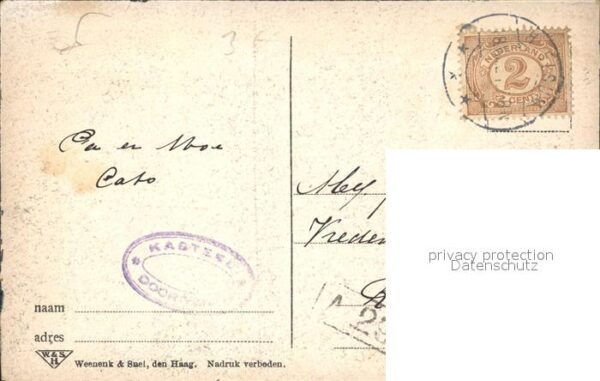 5
3
NEDERLAND
2
2 CENT
Pa en Moe
Cato
Mej
Vreden
KASTEEL
DOORN
privacy protection
Datenschutz
naam
adres
W.&S.
H
Weenenk & Snel, den Haag. Nadruk verboden.